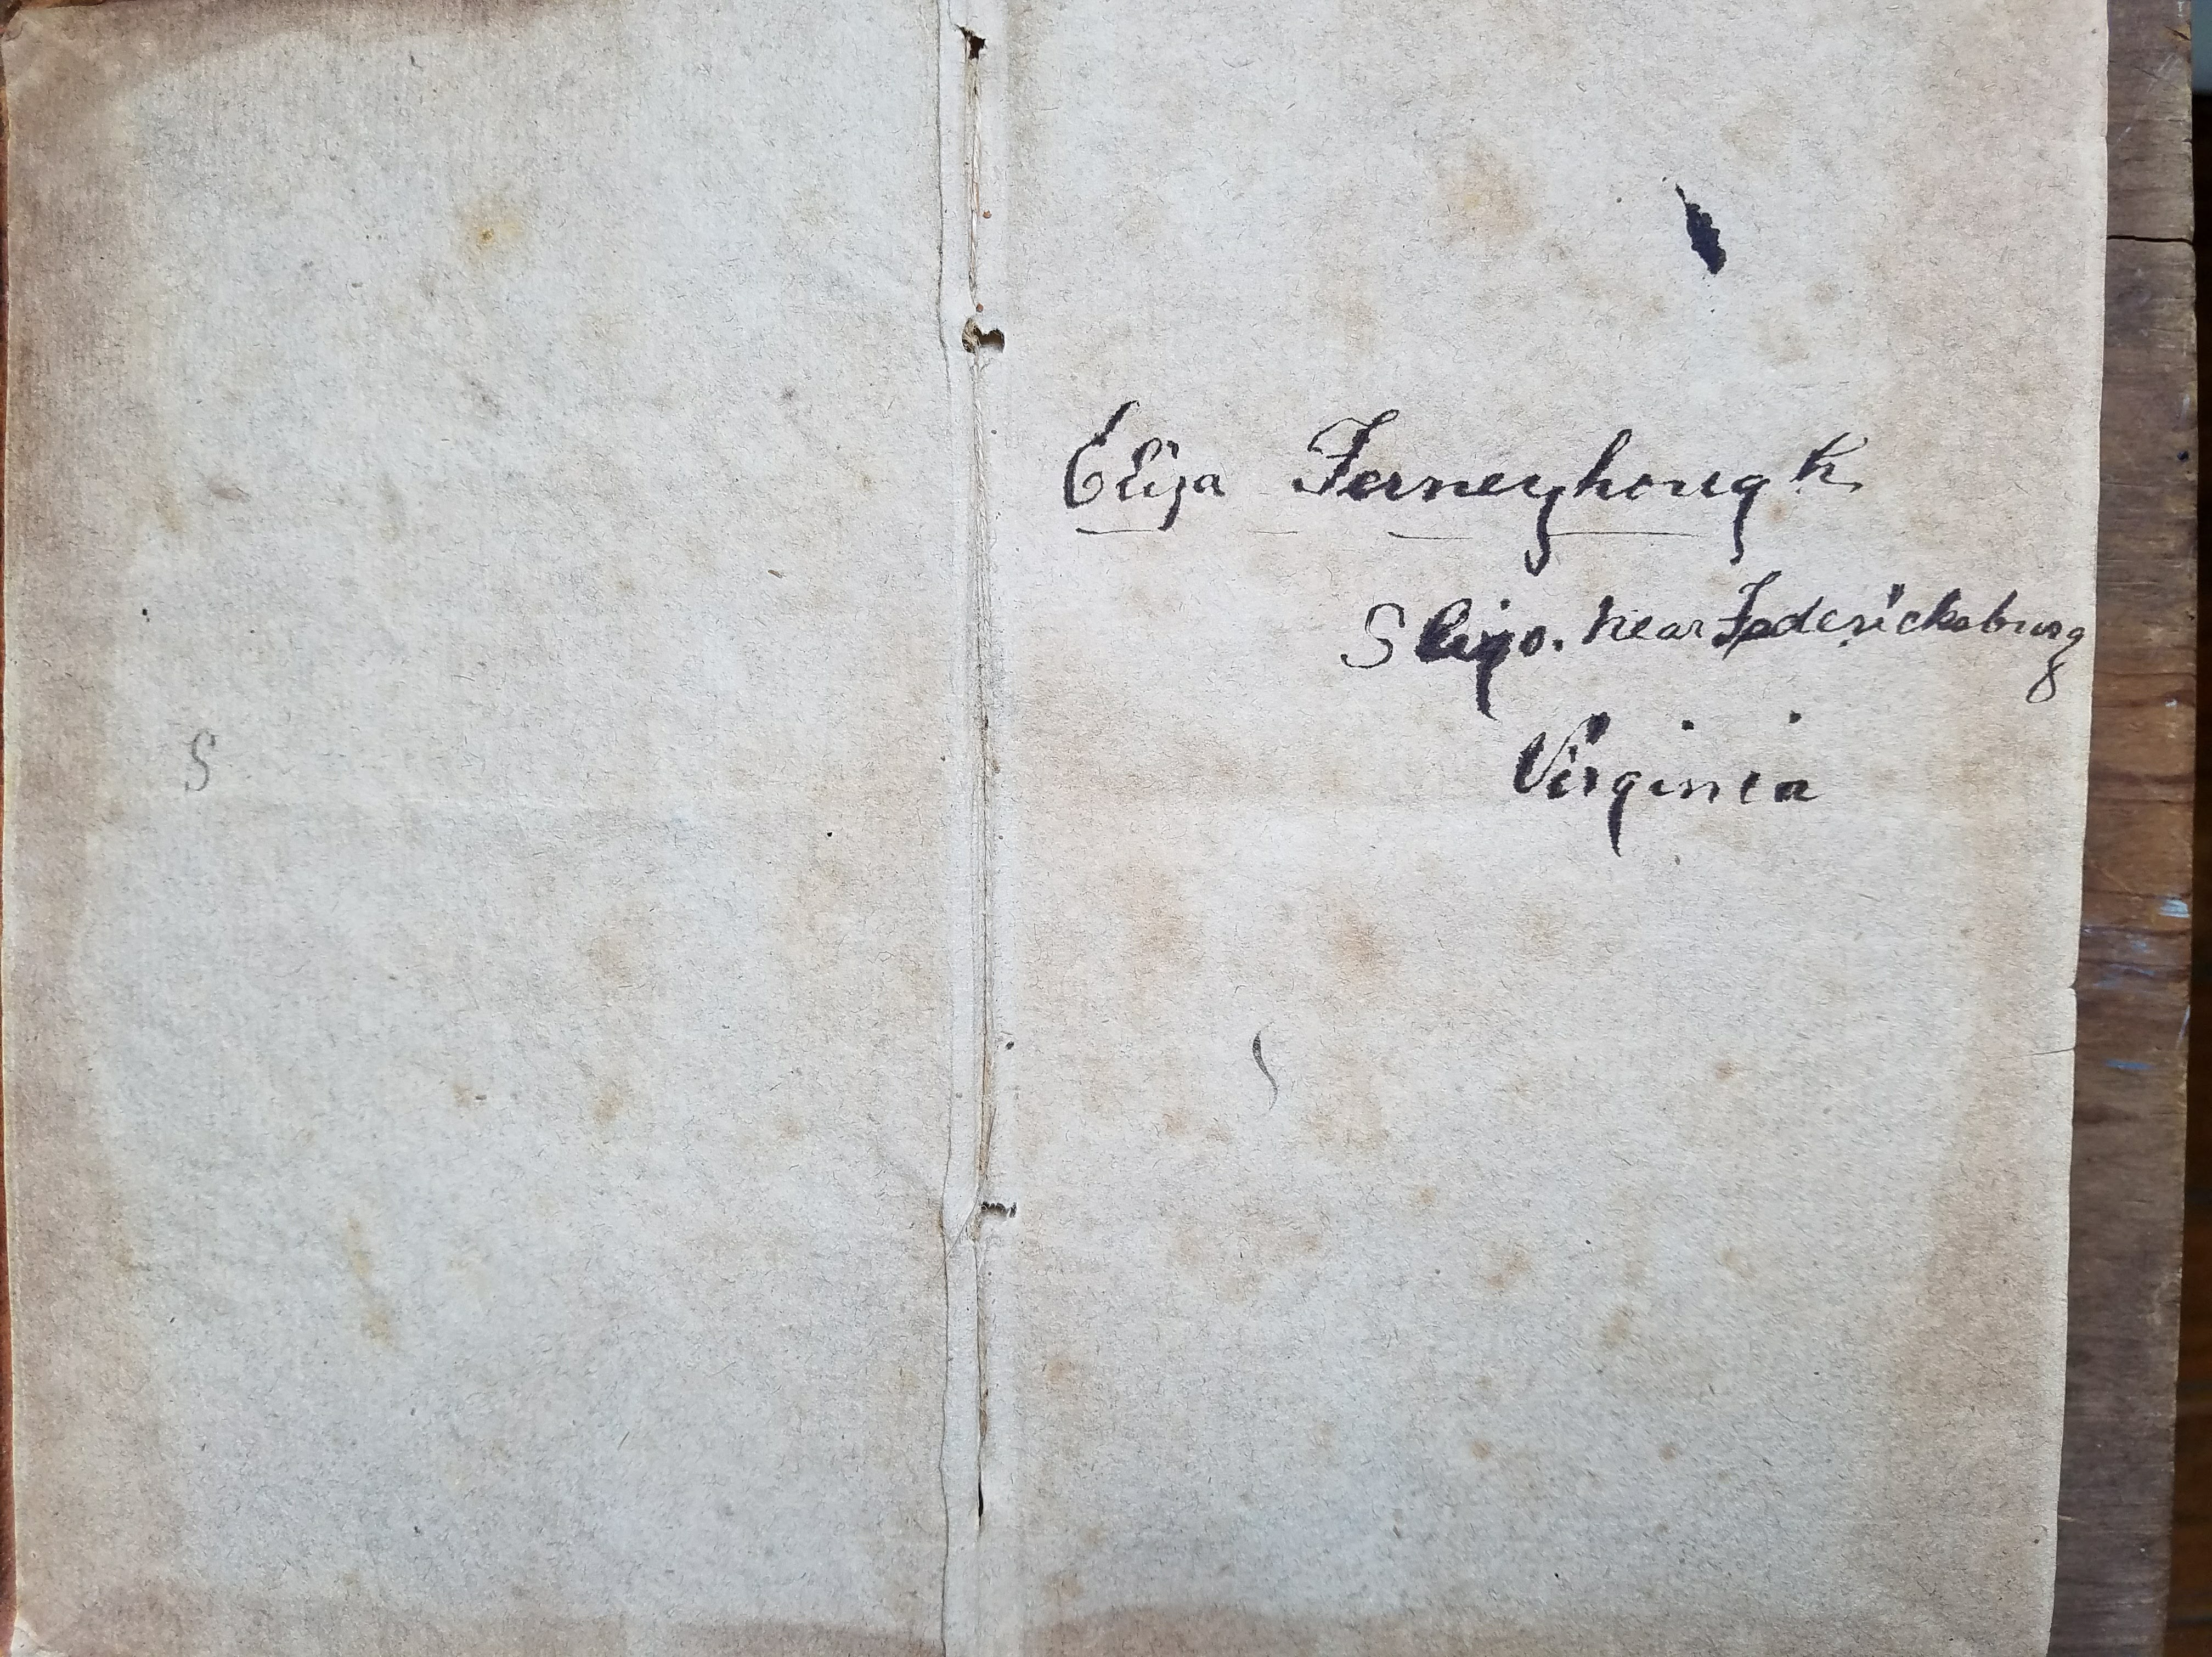 S
Eliza Ferneyhough
Sligo. Near Federicksburg
Virginia